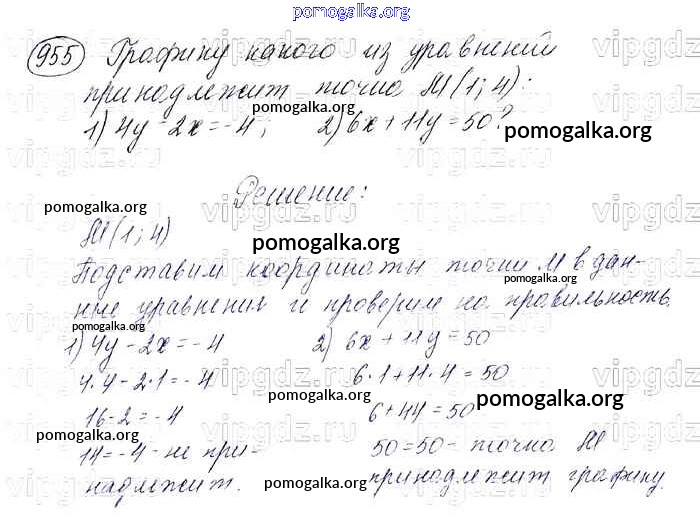 pomogalka.org
955 Графику какого из уравнений
принадлежит точка М(1; 4):
pomogalka.org
1) 4y - 2x = -4; 2) 6x + 11y = 50?
pomogalka.org
Решение:
pomogalka.org
М(1; 4)
pomogalka.org
Подставим координаты точки М в дан-
ные уравнения и проверим на правильность.
pomogalka.org pomogalka.org
1) 4y - 2x = -4 2) 6x + 11y = 50
4·4 - 2·1 = -4 6·1 + 11·4 = 50
pomogalka.org
16 - 2 = -4 6 + 44 = 50
pomogalka.org
14 = -4 - не при- 50 = 50 - точка М
надлежит. принадлежит графику.
pomogalka.org pomogalka.org
vipgdz.ru